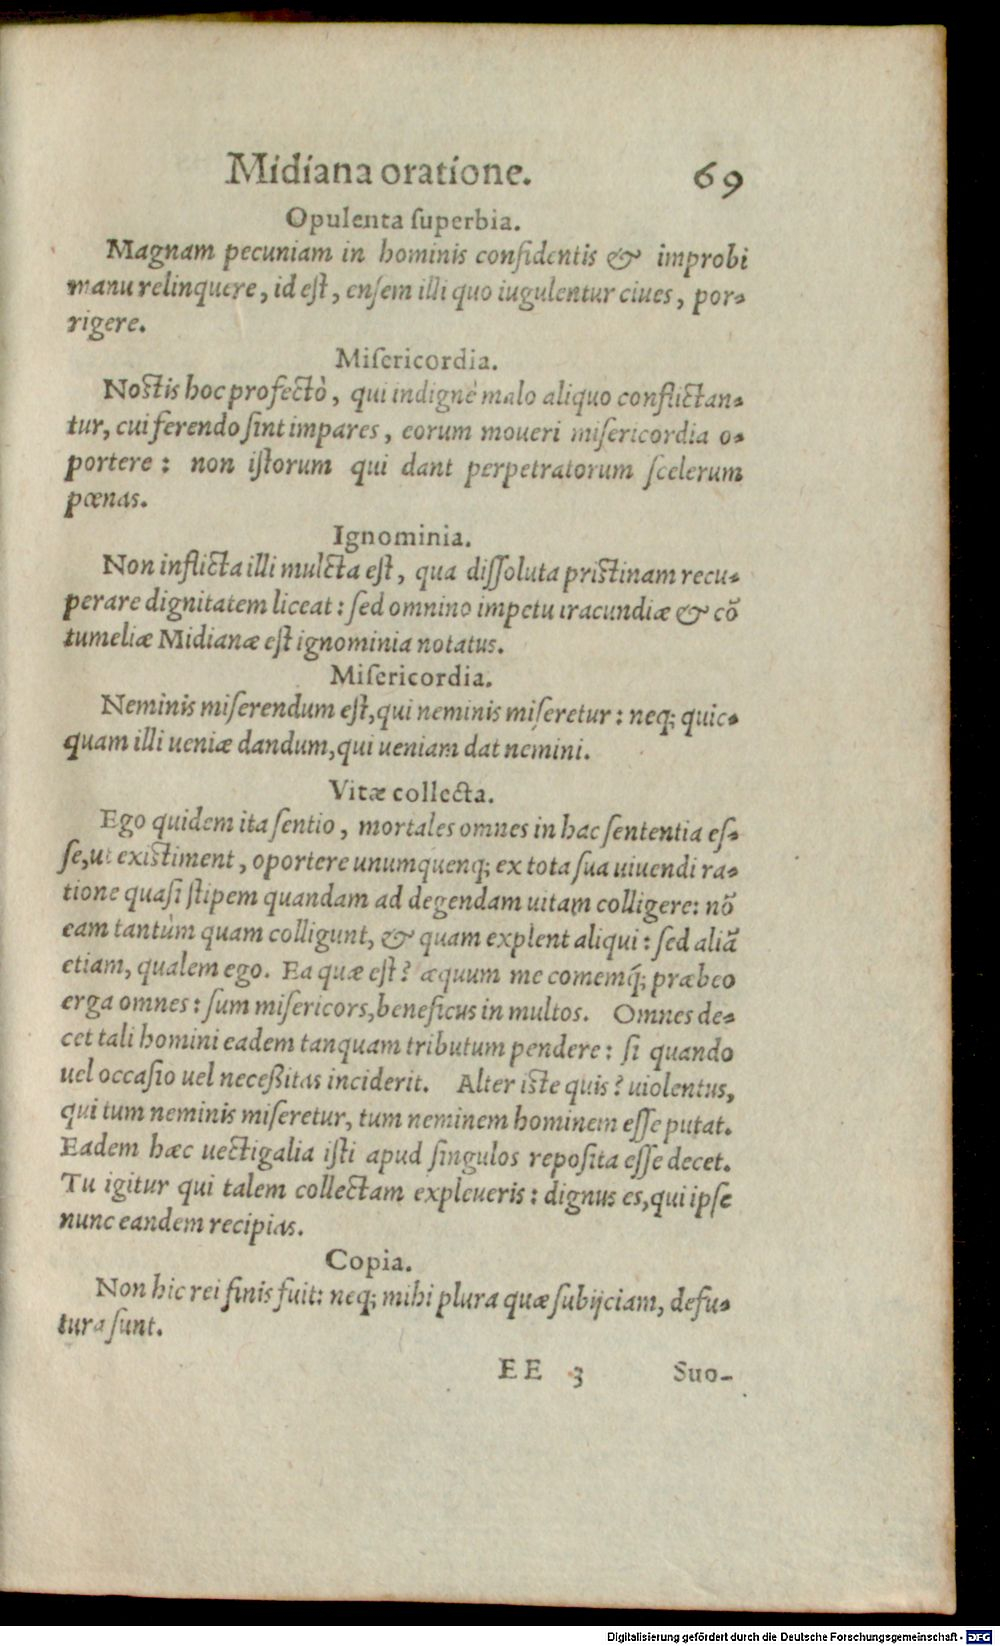 Midiana oratione. 69
Opulenta ſuperbia.
Magnam pecuniam in hominis confidentis & improbi
manu relinquere, id eſt, enſem illi quo iugulentur ciues, por-
rigere.
Miſericordia.
Noſtis hoc profectò, qui indignè malo aliquo conflictan-
tur, cui ferendo ſint impares, eorum moueri miſericordia o-
portere: non iſtorum qui dant perpetratorum ſcelerum
pœnas.
Ignominia.
Non inflicta illi mulcta eſt, qua diſſoluta priſtinam recu-
perare dignitatem liceat: ſed omnino impetu iracundiæ & cō
tumeliæ Midianæ eſt ignominia notatus.
Miſericordia.
Neminis miſerendum eſt, qui neminis miſeretur: neq; quic-
quam illi ueniæ dandum, qui ueniam dat nemini.
Vitæ collecta.
Ego quidem ita ſentio, mortales omnes in hac ſententia eſ-
ſe, ut exiſtiment, oportere unumquenq; ex tota ſua uiuendi ra-
tione quaſi ſtipem quandam ad degendam uitam colligere: nō
eam tantùm quam colligunt, & quam explent aliqui: ſed aliā
etiam, qualem ego. Ea quæ eſt? æquum me comemq́; præbeo
erga omnes: ſum miſericors, beneficus in multos. Omnes de-
cet tali homini eadem tanquam tributum pendere: ſi quando
uel occaſio uel neceßitas inciderit. Alter iſte quis? uiolentus,
qui tum neminis miſeretur, tum neminem hominem eſſe putat.
Eadem hæc uectigalia iſti apud ſingulos repoſita eſſe decet.
Tu igitur qui talem collectam expleueris: dignus es, qui ipſe
nunc eandem recipias.
Copia.
Non hic rei finis fuit: neq; mihi plura quæ ſubijciam, defu-
tura ſunt.
EE 3 Suo-
Digitalisierung gefördert durch die Deutsche Forschungsgemeinschaft - DFG